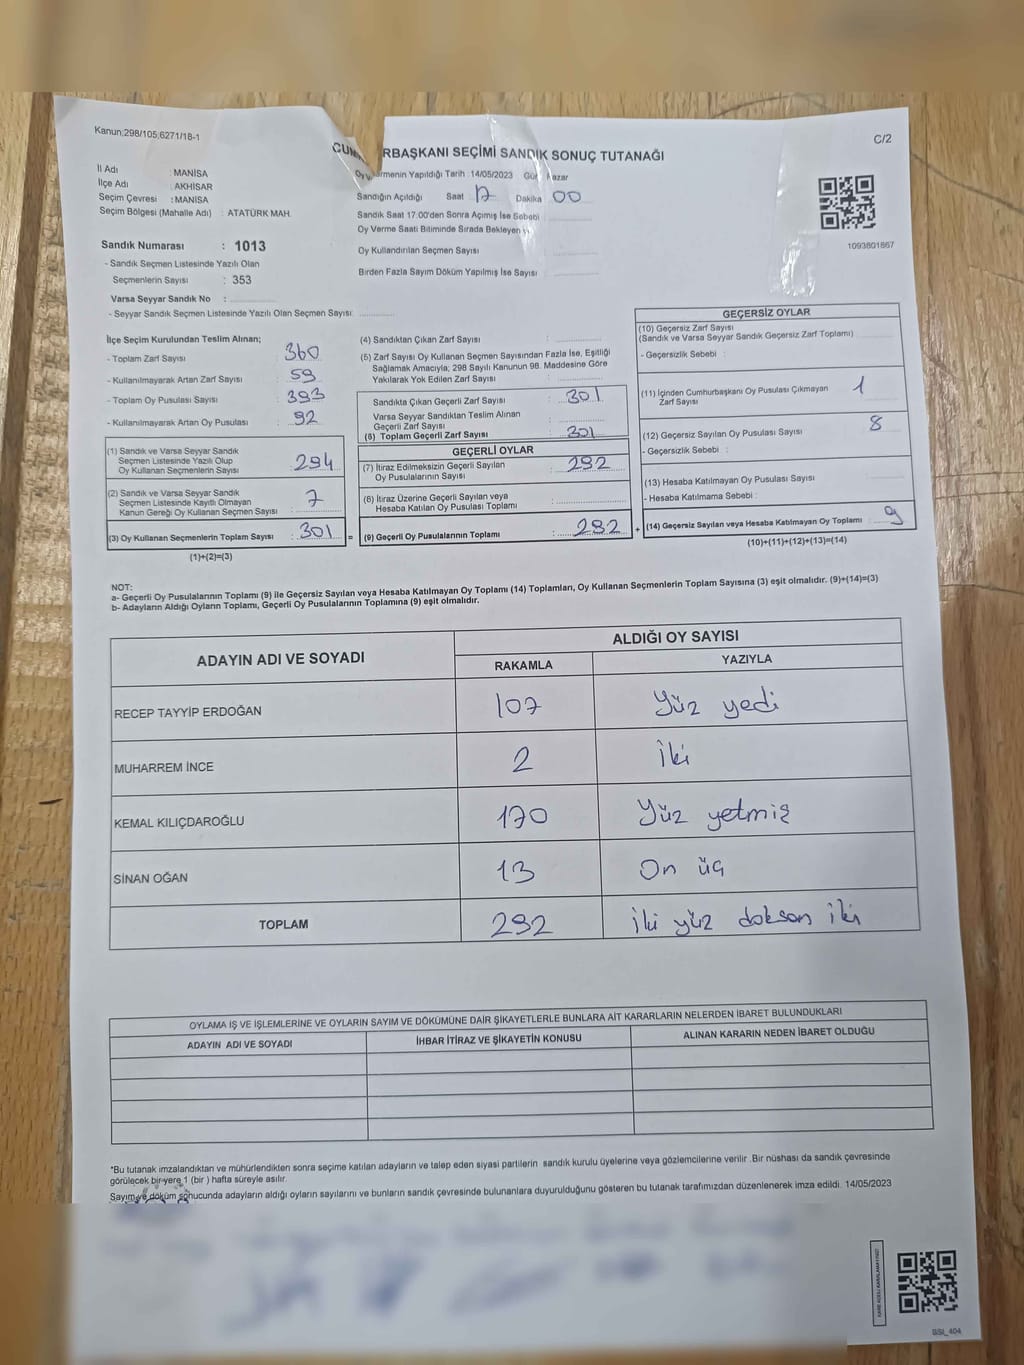 Kanun;298/105;6271/18-1
C/2
RBAŞKANI SEÇİMİ SANDIK SONUÇ TUTANAĞI
İl Adı : MANİSA
İlçe Adı : AKHİSAR
Seçim Çevresi : MANİSA
Seçim Bölgesi (Mahalle Adı) : ATATÜRK MAH.
Sandık Numarası : 1013
- Sandık Seçmen Listesinde Yazılı Olan
Seçmenlerin Sayısı : 353
Varsa Seyyar Sandık No :
- Seyyar Sandık Seçmen Listesinde Yazılı Olan Seçmen Sayısı:
Yapıldığı Tarih :14/05/2023
Sandığın Açıldığı Saat 17 Dakika 00
Sandık Saat 17:00'den Sonra Açımış İse Sebebi
Oy Verme Saati Bitiminde Sırada Bekleyen
Oy Kullandırılan Seçmen Sayısı
Birden Fazla Sayım Döküm Yapılmış İse Sayısı
1093801867
İlçe Seçim Kurulundan Teslim Alınan;
- Toplam Zarf Sayısı : 360
- Kullanılmayarak Artan Zarf Sayısı : 59
- Toplam Oy Pusulası Sayısı : 393
- Kullanılmayarak Artan Oy Pusulası : 92
(1) Sandık ve Varsa Seyyar Sandık
Seçmen Listesinde Yazılı Olup
Oy Kullanan Seçmenlerin Sayısı : 294
(2) Sandık ve Varsa Seyyar Sandık
Seçmen Listesinde Kayıtlı Olmayan
Kanun Gereği Oy Kullanan Seçmen Sayısı : 7
(3) Oy Kullanan Seçmenlerin Toplam Sayısı : 301 =
(1)+(2)=(3)
(4) Sandıktan Çıkan Zarf Sayısı :
(5) Zarf Sayısı Oy Kullanan Seçmen Sayısından Fazla İse, Eşitliği
Sağlamak Amacıyla; 298 Sayılı Kanunun 98. Maddesine Göre
Yakılarak Yok Edilen Zarf Sayısı :
Sandıkta Çıkan Geçerli Zarf Sayısı : 301
Varsa Seyyar Sandıktan Teslim Alınan
Geçerli Zarf Sayısı :
(6) Toplam Geçerli Zarf Sayısı : 301
GEÇERLİ OYLAR
(7) İtiraz Edilmeksizin Geçerli Sayılan
Oy Pusulalarının Sayısı : 292
(8) İtiraz Üzerine Geçerli Sayılan veya
Hesaba Katılan Oy Pusulası Toplamı :
(9) Geçerli Oy Pusulalarının Toplamı : 292 +
GEÇERSİZ OYLAR
(10) Geçersiz Zarf Sayısı
(Sandık ve Varsa Seyyar Sandık Geçersiz Zarf Toplamı)
- Geçersizlik Sebebi :
(11) İçinden Cumhurbaşkanı Oy Pusulası Çıkmayan
Zarf Sayısı 1
(12) Geçersiz Sayılan Oy Pusulası Sayısı 8
- Geçersizlik Sebebi :
(13) Hesaba Katılmayan Oy Pusulası Sayısı
- Hesaba Katılmama Sebebi :
(14) Geçersiz Sayılan veya Hesaba Katılmayan Oy Toplamı : 9
(10)+(11)+(12)+(13)=(14)
NOT:
a- Geçerli Oy Pusulalarının Toplamı (9) ile Geçersiz Sayılan veya Hesaba Katılmayan Oy Toplamı (14) Toplamları, Oy Kullanan Seçmenlerin Toplam Sayısına (3) eşit olmalıdır. (9)+(14)=(3)
b- Adayların Aldığı Oyların Toplamı, Geçerli Oy Pusulalarının Toplamına (9) eşit olmalıdır.
ADAYIN ADI VE SOYADI
ALDIĞI OY SAYISI
RAKAMLA YAZIYLA
RECEP TAYYİP ERDOĞAN 107 Yüz yedi
MUHARREM İNCE 2 İki
KEMAL KILIÇDAROĞLU 170 Yüz yetmiş
SİNAN OĞAN 13 On üç
TOPLAM 292 İki yüz doksan iki
OYLAMA İŞ VE İŞLEMLERİNE VE OYLARIN SAYIM VE DÖKÜMÜNE DAİR ŞİKAYETLERLE BUNLARA AİT KARARLARIN NELERDEN İBARET BULUNDUKLARI
ADAYIN ADI VE SOYADI İHBAR İTİRAZ VE ŞİKAYETİN KONUSU ALINAN KARARIN NEDEN İBARET OLDUĞU
*Bu tutanak imzalandıktan ve mühürlendikten sonra seçime katılan adayların ve talep eden siyasi partilerin sandık kurulu üyelerine veya gözlemcilerine verilir .Bir nüshası da sandık çevresinde
görülecek bir yere 1 (bir ) hafta süreyle asılır.
Sayım ve döküm sonucunda adayların aldığı oyların sayılarını ve bunların sandık çevresinde bulunanlara duyurulduğunu gösteren bu tutanak tarafımızdan düzenlenerek imza edildi. 14/05/2023
BSI_404